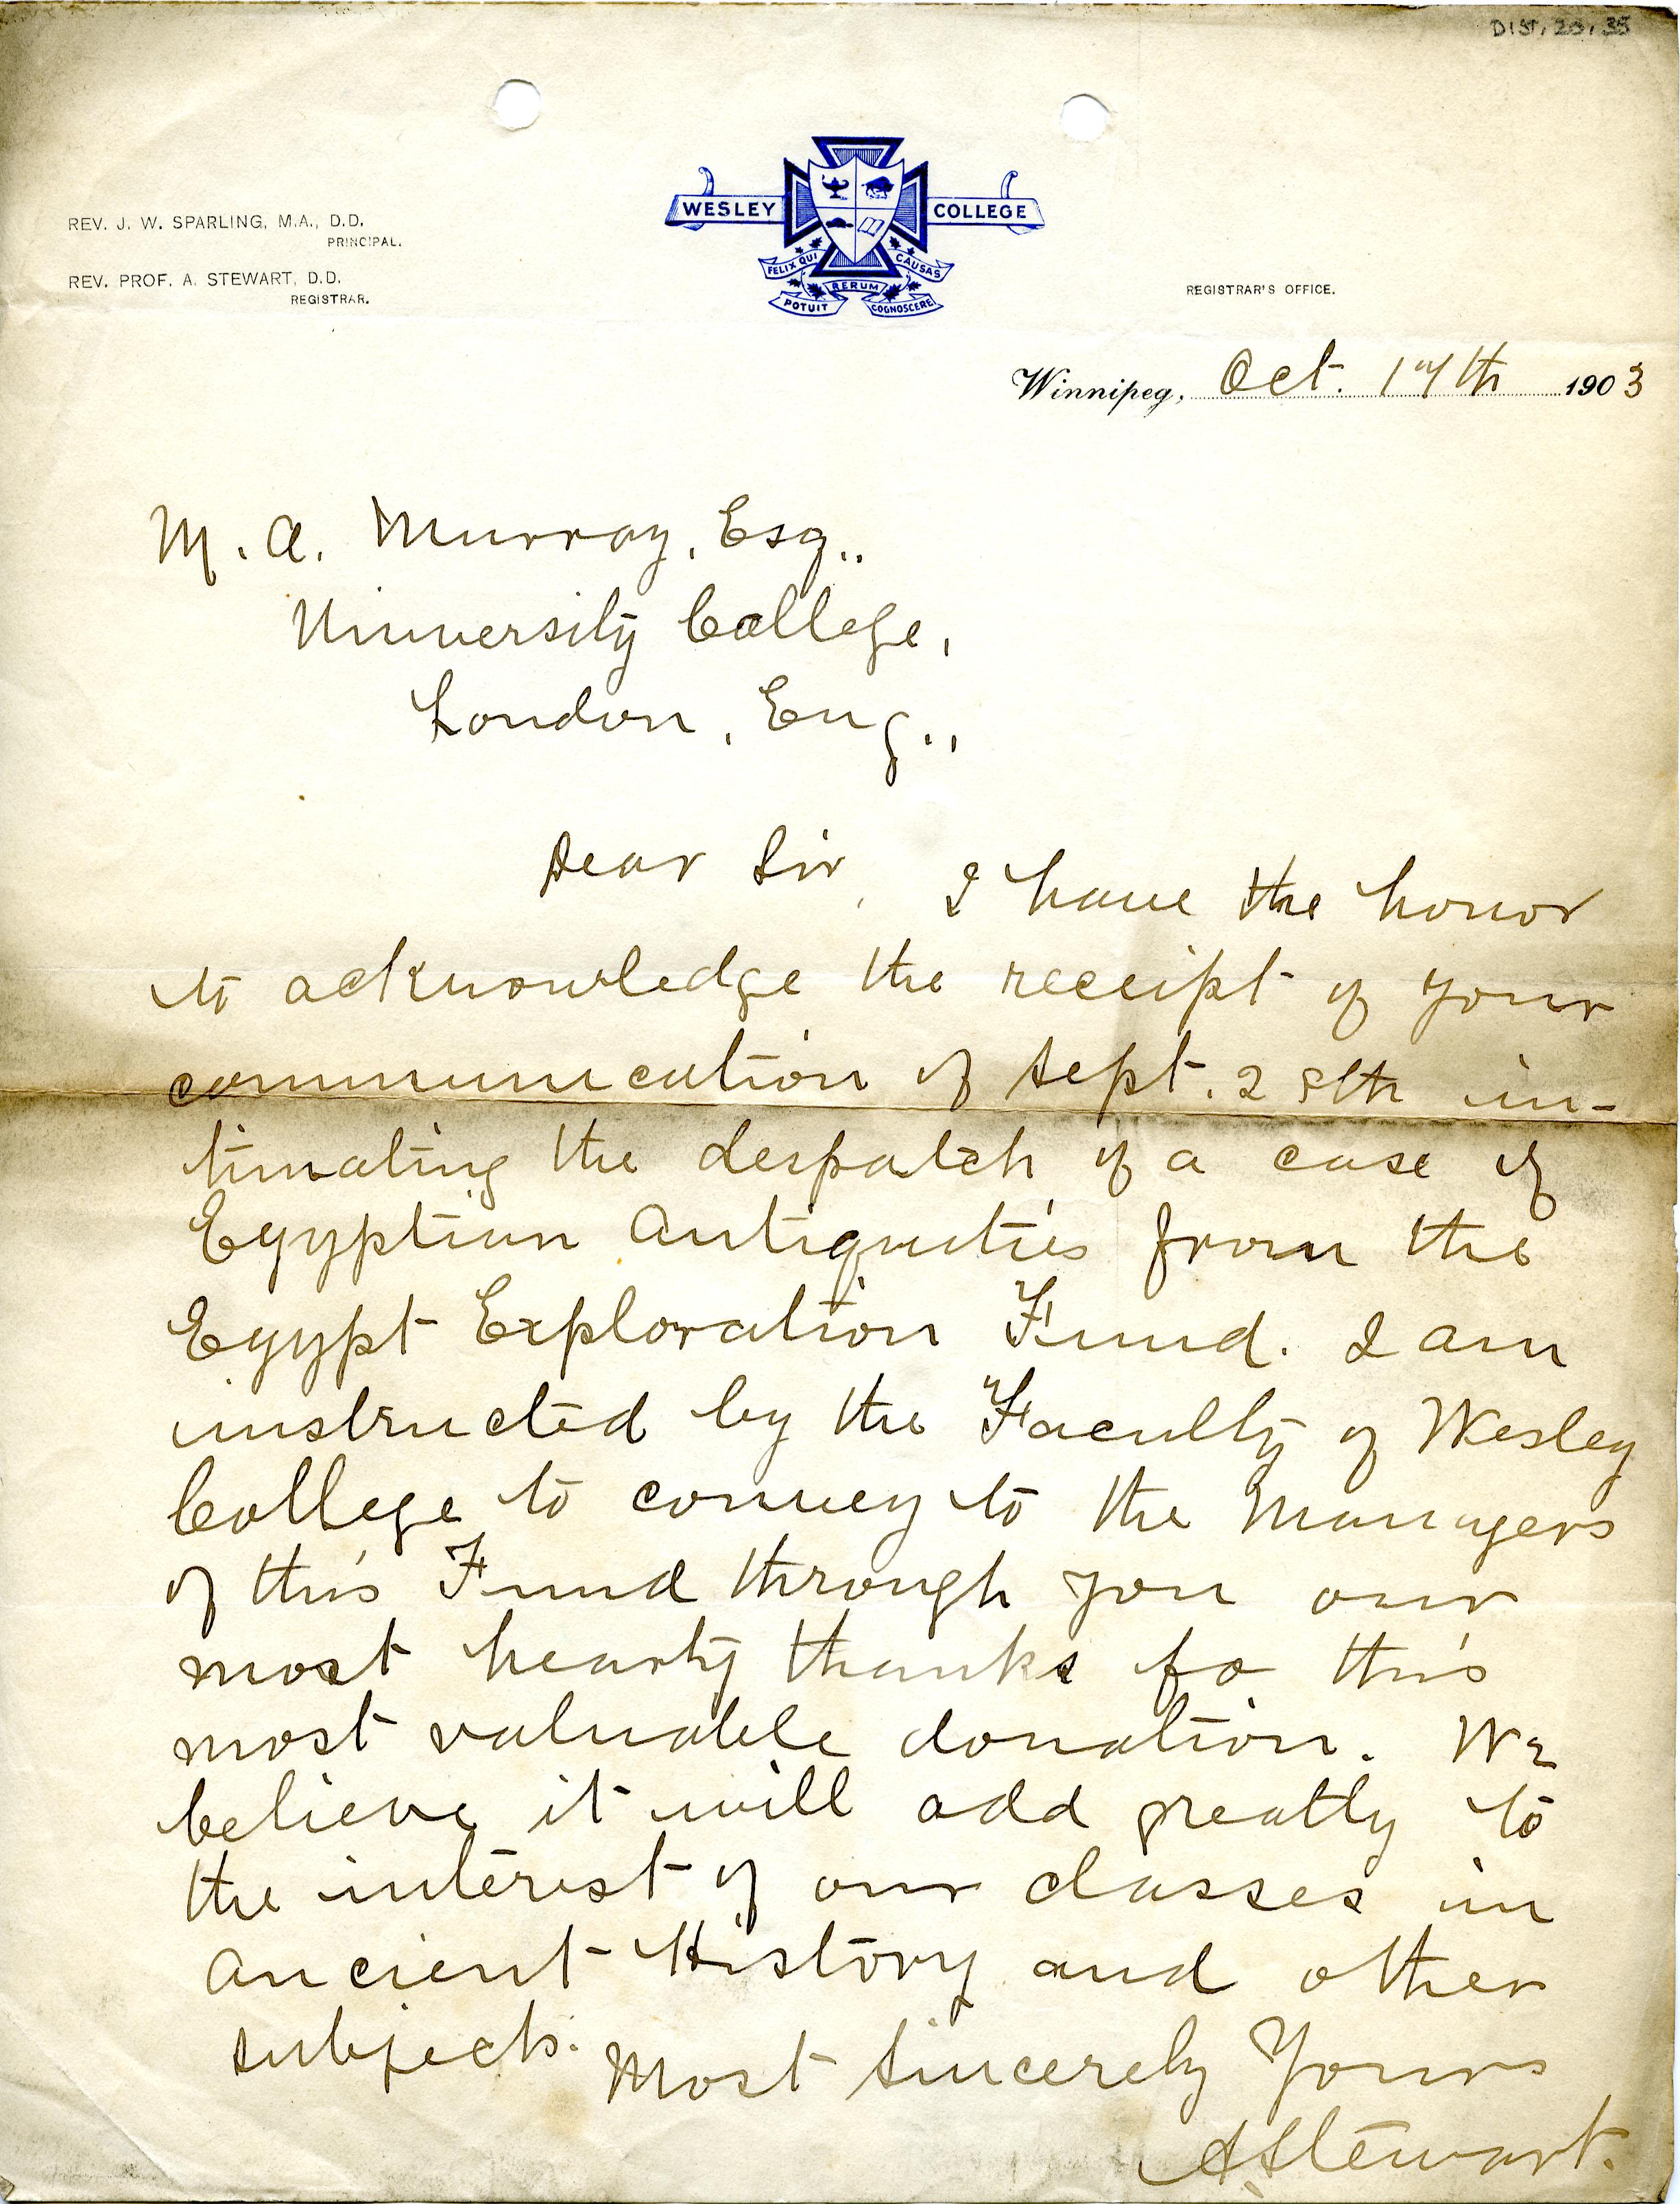 DIST. 20. 35
WESLEY COLLEGE
FELIX QUI POTUIT RERUM CAUSAS COGNOSCERE
REV. J. W. SPARLING, M.A., D.D.
PRINCIPAL.
REV. PROF. A. STEWART, D.D.
REGISTRAR.
REGISTRAR'S OFFICE.
Winnipeg, Oct. 17th 1903
M. A. Murray, Esq.,
University College,
London, Eng.,
Dear Sir, I have the honor
to acknowledge the receipt of your
communication of Sept. 28th in-
timating the despatch of a case of
Egyptian Antiquities from the
Egypt Exploration Fund. I am
instructed by the Faculty of Wesley
College to convey to the Managers
of this Fund through you our
most hearty thanks fo this
most valuable donation. We
believe it will add greatly to
the interest of our classes in
Ancient History and other
subjects.
Most Sincerely Yours
A Stewart.